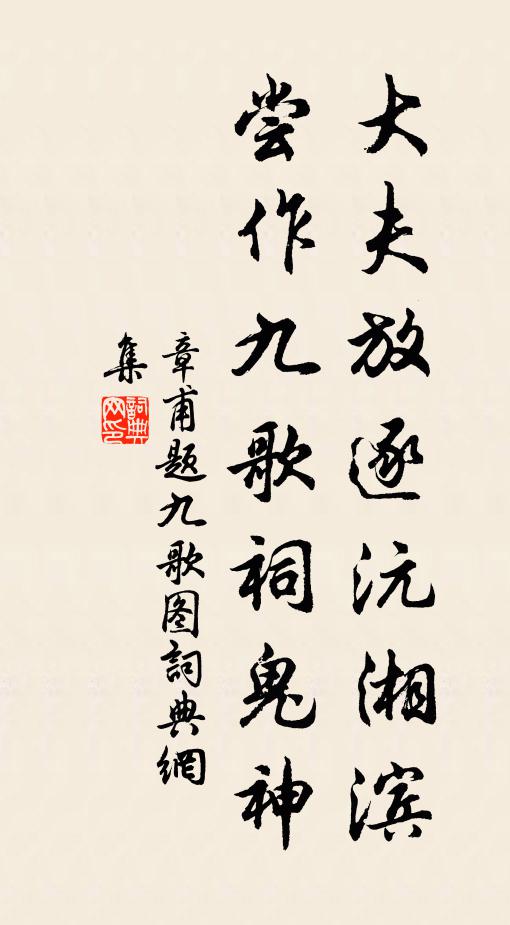 大夫放逐沅湘滨
尝作九歌祠鬼神
章甫题九歌图詞典網
集
詞典网印